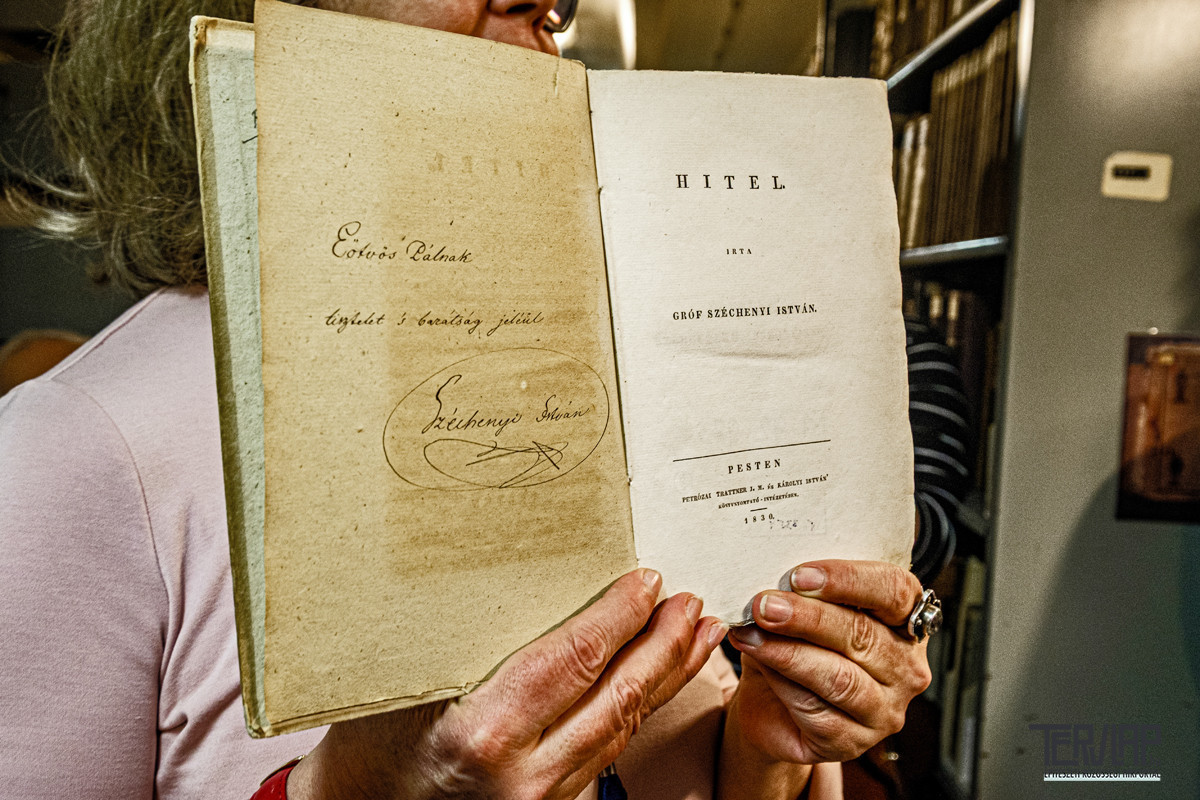 Eötvös Pálnak
tisztelet 's barátság jeléül
Széchenyi István
HITEL.
IRTA
GRÓF SZÉCHENYI ISTVÁN.
PESTEN
PETRÓZAI TRATTNER J. M. és KÁROLYI ISTVÁN'
KÖNYVNYOMTATÓ-INTÉZETÉBEN.
1830.
TERVLAP
ÉPÍTÉSZETI KÖZÖSSÉGI HÍRPORTÁL